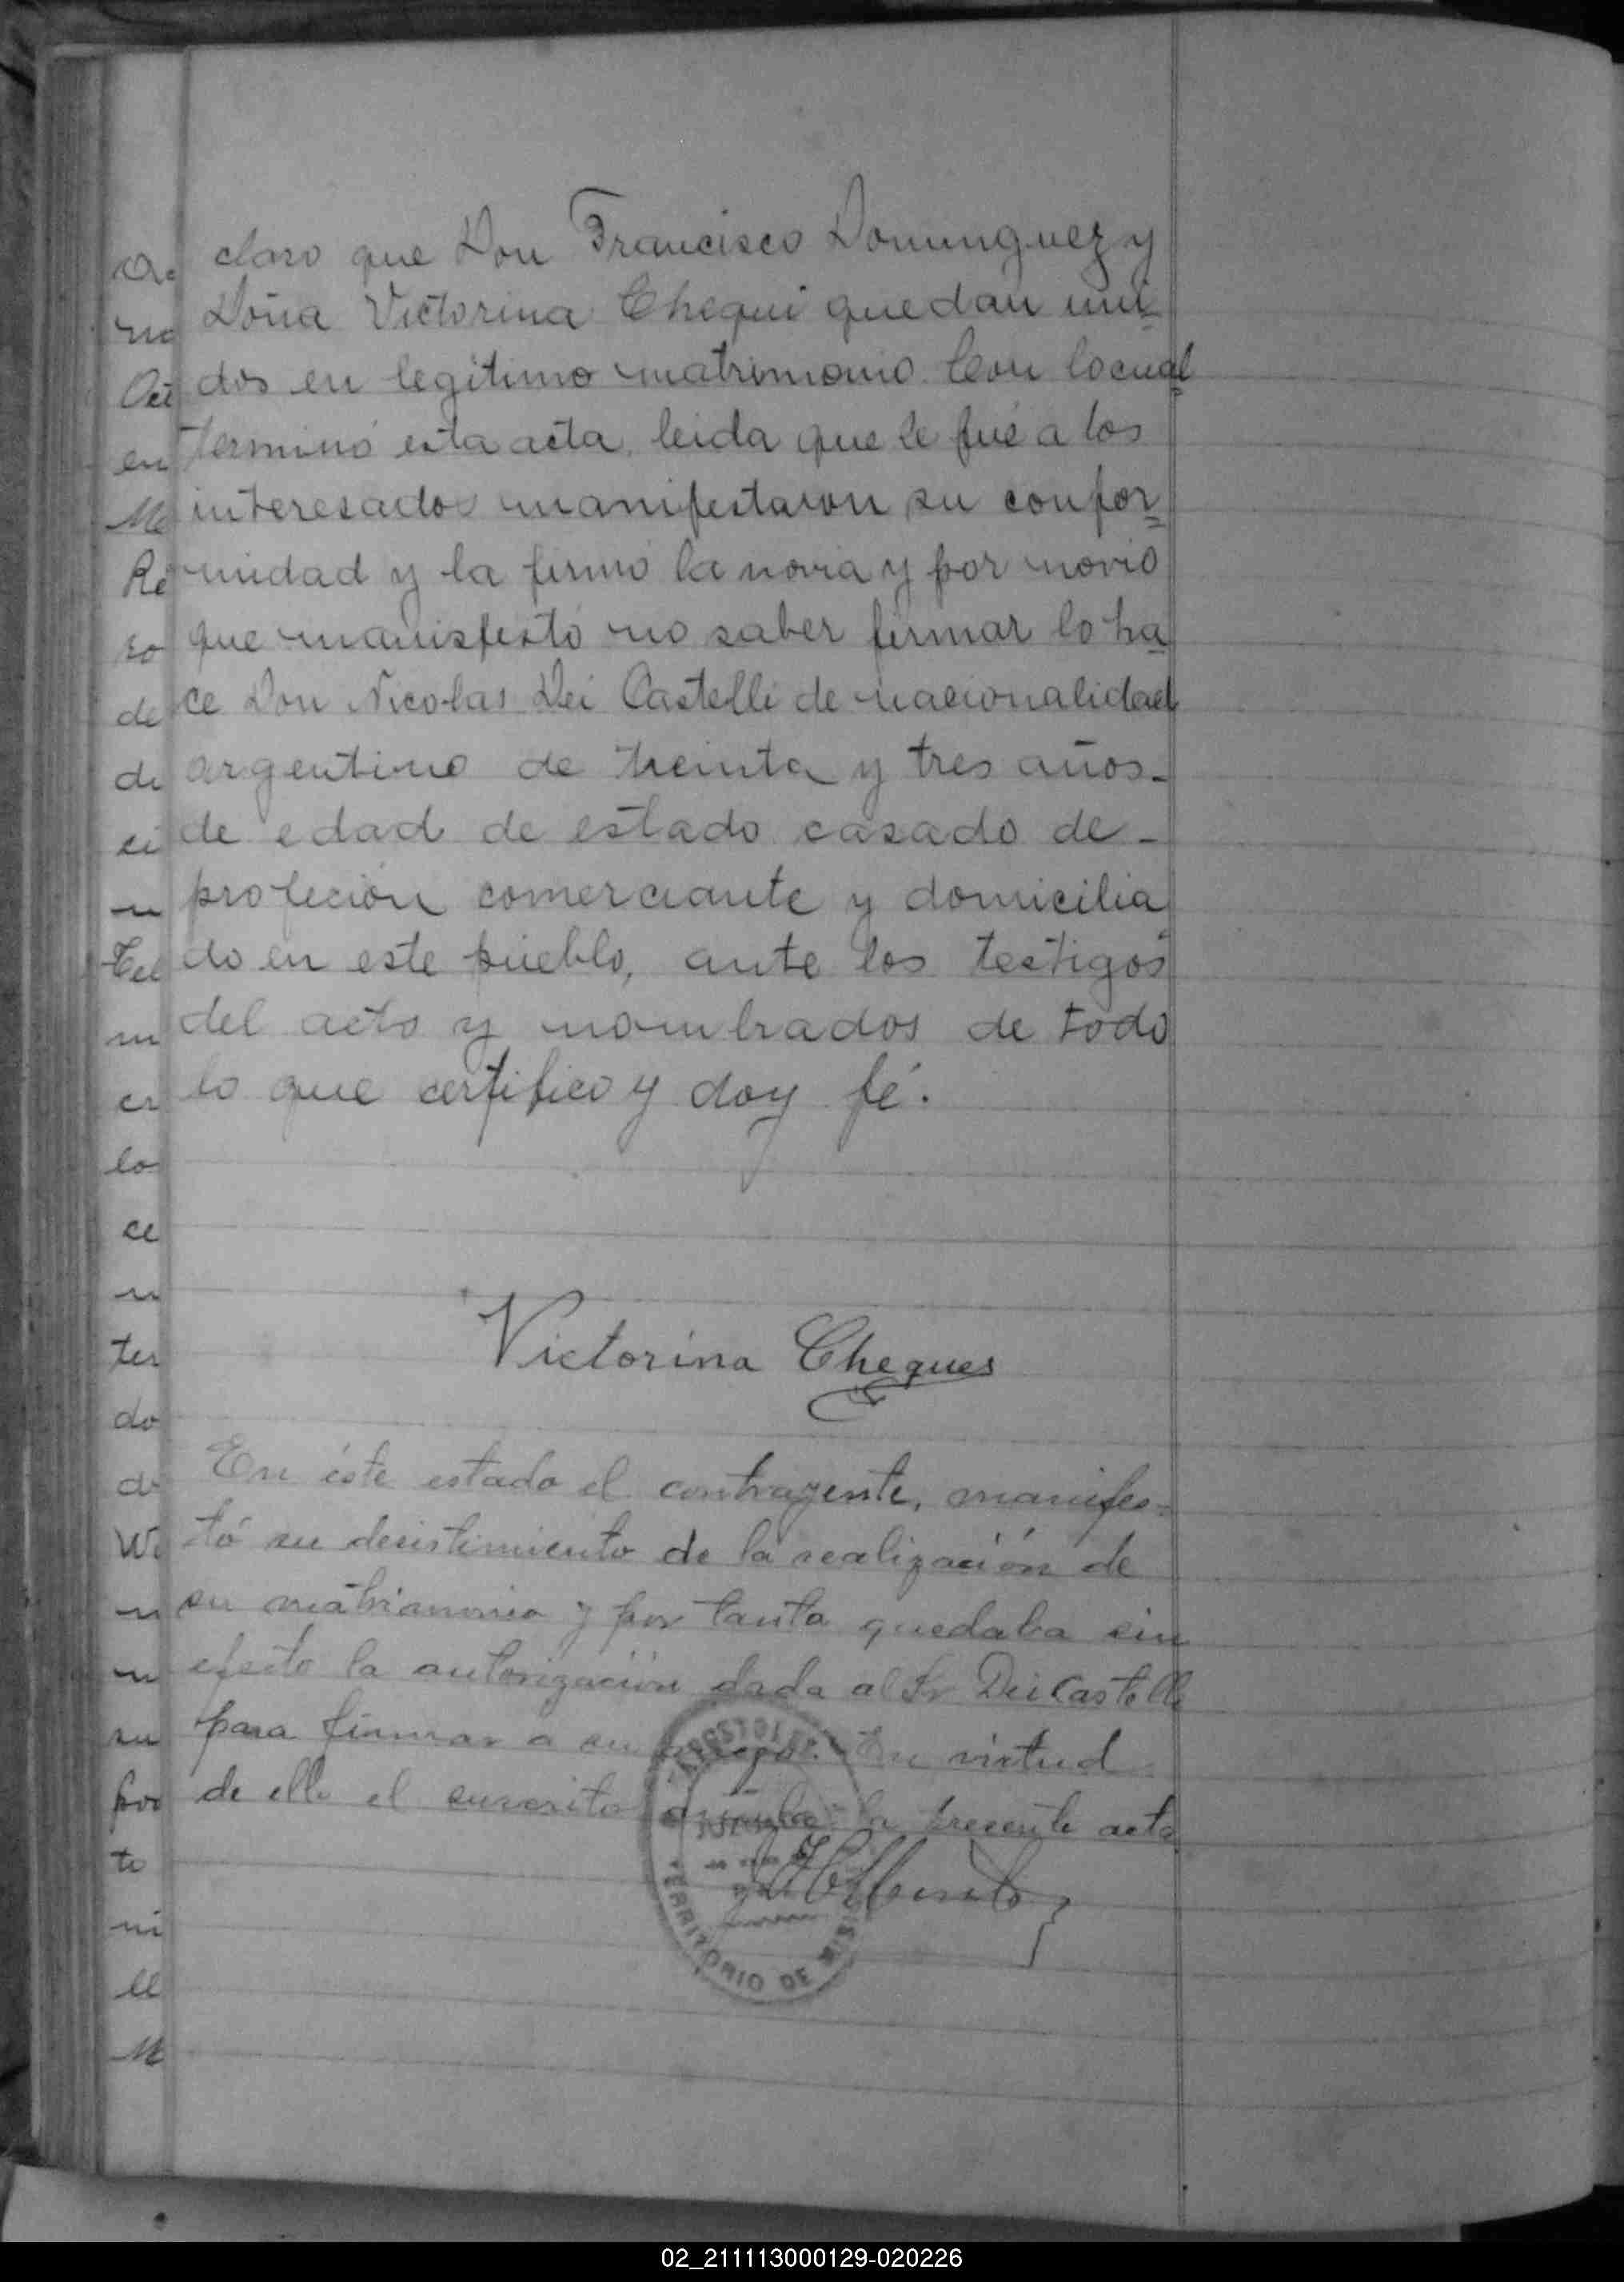 claro que Don Francisco Dominguez y
Doña Victorina Chequi quedan uni=
dos en legitimo matrimonio. Con lo cual
terminó esta acta, leida que le fué a los
interesados manifestaron su confor=
midad y la firmó la novia y por novio
que manisfestó no saber firmar lo ha
ce Don Nicolas Dei Castelli de nacionalidad
argentino de treinta y tres años-
de edad de estado casado de-
profeción comerciante y domicilia
do en este pueblo, ante los testigos
del acto y nombrados de todo
lo que certifico y doy fé.
Victorina Cheques
En éste estado el contrayente, manifes=
tó su desistimiento de la realización de
su matrimonio y por tanto quedaba sin
efecto la autorización dada al Sr Dei Castelli
para firmar a su ruego. En virtud
de ello el suscrito anula la presente acta
APOSTOLES
TERRITORIO DE MIS
02_211113000129-020226